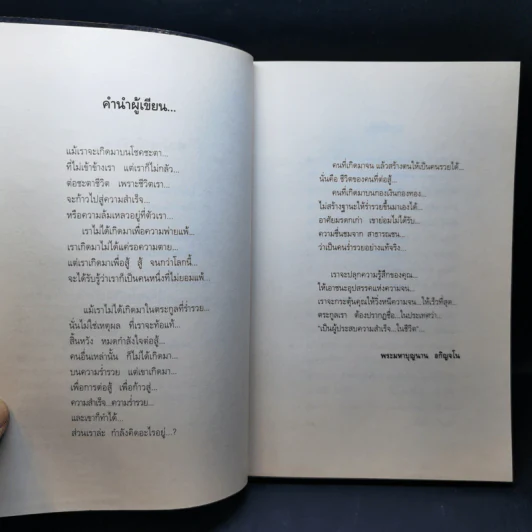 คำนำผู้เขียน...
แม้เราจะเกิดมาบนโชคชะตา...
ที่ไม่เข้าข้างเรา แต่เราก็ไม่กลัว...
ต่อชะตาชีวิต เพราะชีวิตเรา...
จะก้าวไปสู่ความสำเร็จ...
หรือความล้มเหลวอยู่ที่ตัวเรา...
เราไม่ได้เกิดมาเพื่อความพ่ายแพ้...
เราเกิดมาไม่ได้แค่รอความตาย...
แต่เราเกิดมาเพื่อสู้ สู้ จนกว่าโลกนี้...
จะได้รับรู้ว่าเราก็เป็นคนหนึ่งที่ไม่ยอมแพ้...
แม้เราไม่ได้เกิดมาในตระกูลที่ร่ำรวย...
นั่นไม่ใช่เหตุผล ที่เราจะท้อแท้...
สิ้นหวัง หมดกำลังใจต่อสู้...
คนอื่นเหล่านั้น ก็ไม่ได้เกิดมา...
บนความร่ำรวย แต่เขาเกิดมา...
เพื่อการต่อสู้ เพื่อก้าวสู่...
ความสำเร็จ...ความร่ำรวย...
และเขาก็ทำได้...
ส่วนเราล่ะ กำลังคิดอะไรอยู่...?
คนที่เกิดมาจน แล้วสร้างตนให้เป็นคนรวยได้...
นั่นคือ ชีวิตของคนที่ต่อสู้...
คนที่เกิดมาบนกองเงินกองทอง...
ไม่สร้างฐานะให้ร่ำรวยขึ้นมาเองได้...
อาศัยมรดกเก่า เขาย่อมไม่ได้รับ...
ความชื่นชมจาก สาธารณชน...
ว่าเป็นคนร่ำรวยอย่างแท้จริง...
เราจะปลุกความรู้สึกของคุณ...
ให้เอาชนะอุปสรรคแห่งความจน...
เราจะกระตุ้นคุณให้วิ่งหนีความจน...ให้เร็วที่สุด...
ตระกูลเรา ต้องปรากฏชื่อ...ในประเทศว่า...
"เป็นผู้ประสบความสำเร็จ...ในชีวิต"...
พระมหาบุญนาน อกิญจโน